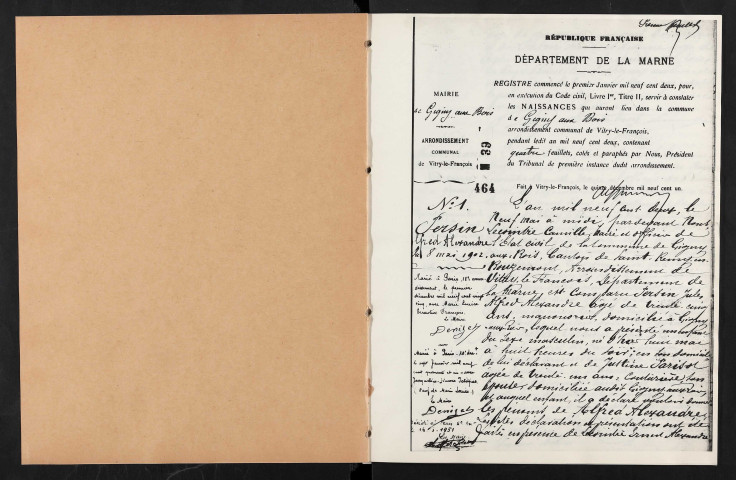 RÉPUBLIQUE FRANÇAISE
DÉPARTEMENT DE LA MARNE
REGISTRE commencé le premier Janvier mil neuf cent deux, pour,
en exécution du Code civil, Livre Ier, Titre II, servir à constater
les NAISSANCES qui auront lieu dans la commune
de Gigny aux Bois
arrondissement communal de Vitry-le-François,
pendant ledit an mil neuf cent deux, contenant
quatre feuillets, cotés et paraphés par Nous, Président
du Tribunal de première instance dudit arrondissement.
Fait à Vitry-le-François, le quinze décembre mil neuf cent un.
MAIRIE
de Gigny aux Bois
ARRONDISSEMENT
COMMUNAL
de Vitry-le-François
39
464
No 1.
Persin
Alfred Alexandre
8 mai 1902
L'an mil neuf cent deux, le
Neuf mai à midi, pardevant Nous
Lecomte Camille, Maire et officier de
l'Etat civil de la commune de Gigny
aux Bois, Canton de Saint Remy en
Bouzemont, Arrondissement de
Vitry le François, Département de
la Marne, est comparu Persin Jules
Alfred Alexandre âgé de trente cinq
ans, manouvrier, domicilié à Gigny
aux Bois, lequel nous a présenté un enfant
du sexe masculin, né hier huit mai
à huit heures du soir, en son domicile
de lui déclarant et de Justine Parisot
âgée de trente un ans, Couturière, son
épouse domiciliée audit Gigny aux Bois
et auquel enfant, il a déclaré vouloir donner
les prénoms de Alfred Alexandre
Lesdites déclaration et présentation ont été
faites en présence de Lecomte Alexandre
Marié à Paris
le premier
décembre mil neuf cent vingt
cinq, avec Marie
Le Maire
Denizet
Marié à Paris
le sept janvier mil neuf
cent quarante
Le Maire
Denizet
1951
Le Maire